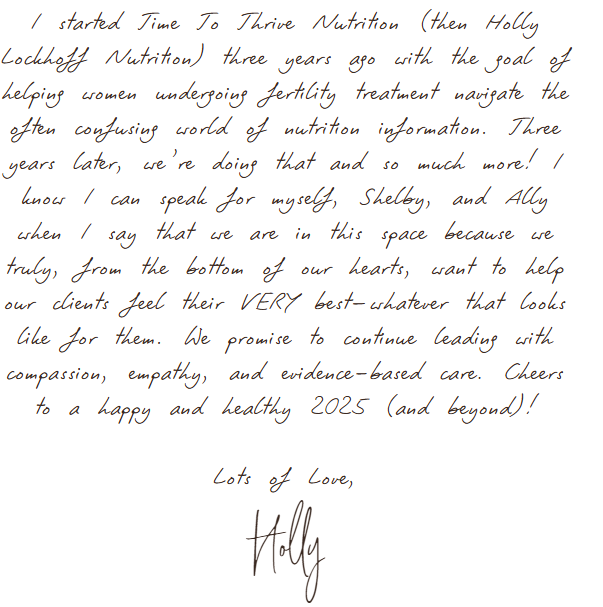 I started Time To Thrive Nutrition (then Holly
Lockhoff Nutrition) three years ago with the goal of
helping women undergoing fertility treatment navigate the
often confusing world of nutrition information. Three
years later, we're doing that and so much more! I
know I can speak for myself, Shelby, and Ally
when I say that we are in this space because we
truly, from the bottom of our hearts, want to help
our clients feel their VERY best—whatever that looks
like for them. We promise to continue leading with
compassion, empathy, and evidence-based care. Cheers
to a happy and healthy 2025 (and beyond)!
Lots of Love,
Holly